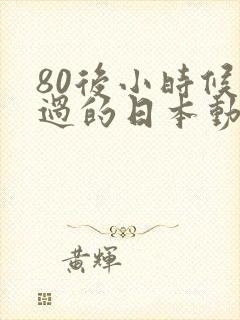 80後小時候
過的日本動
黃輝